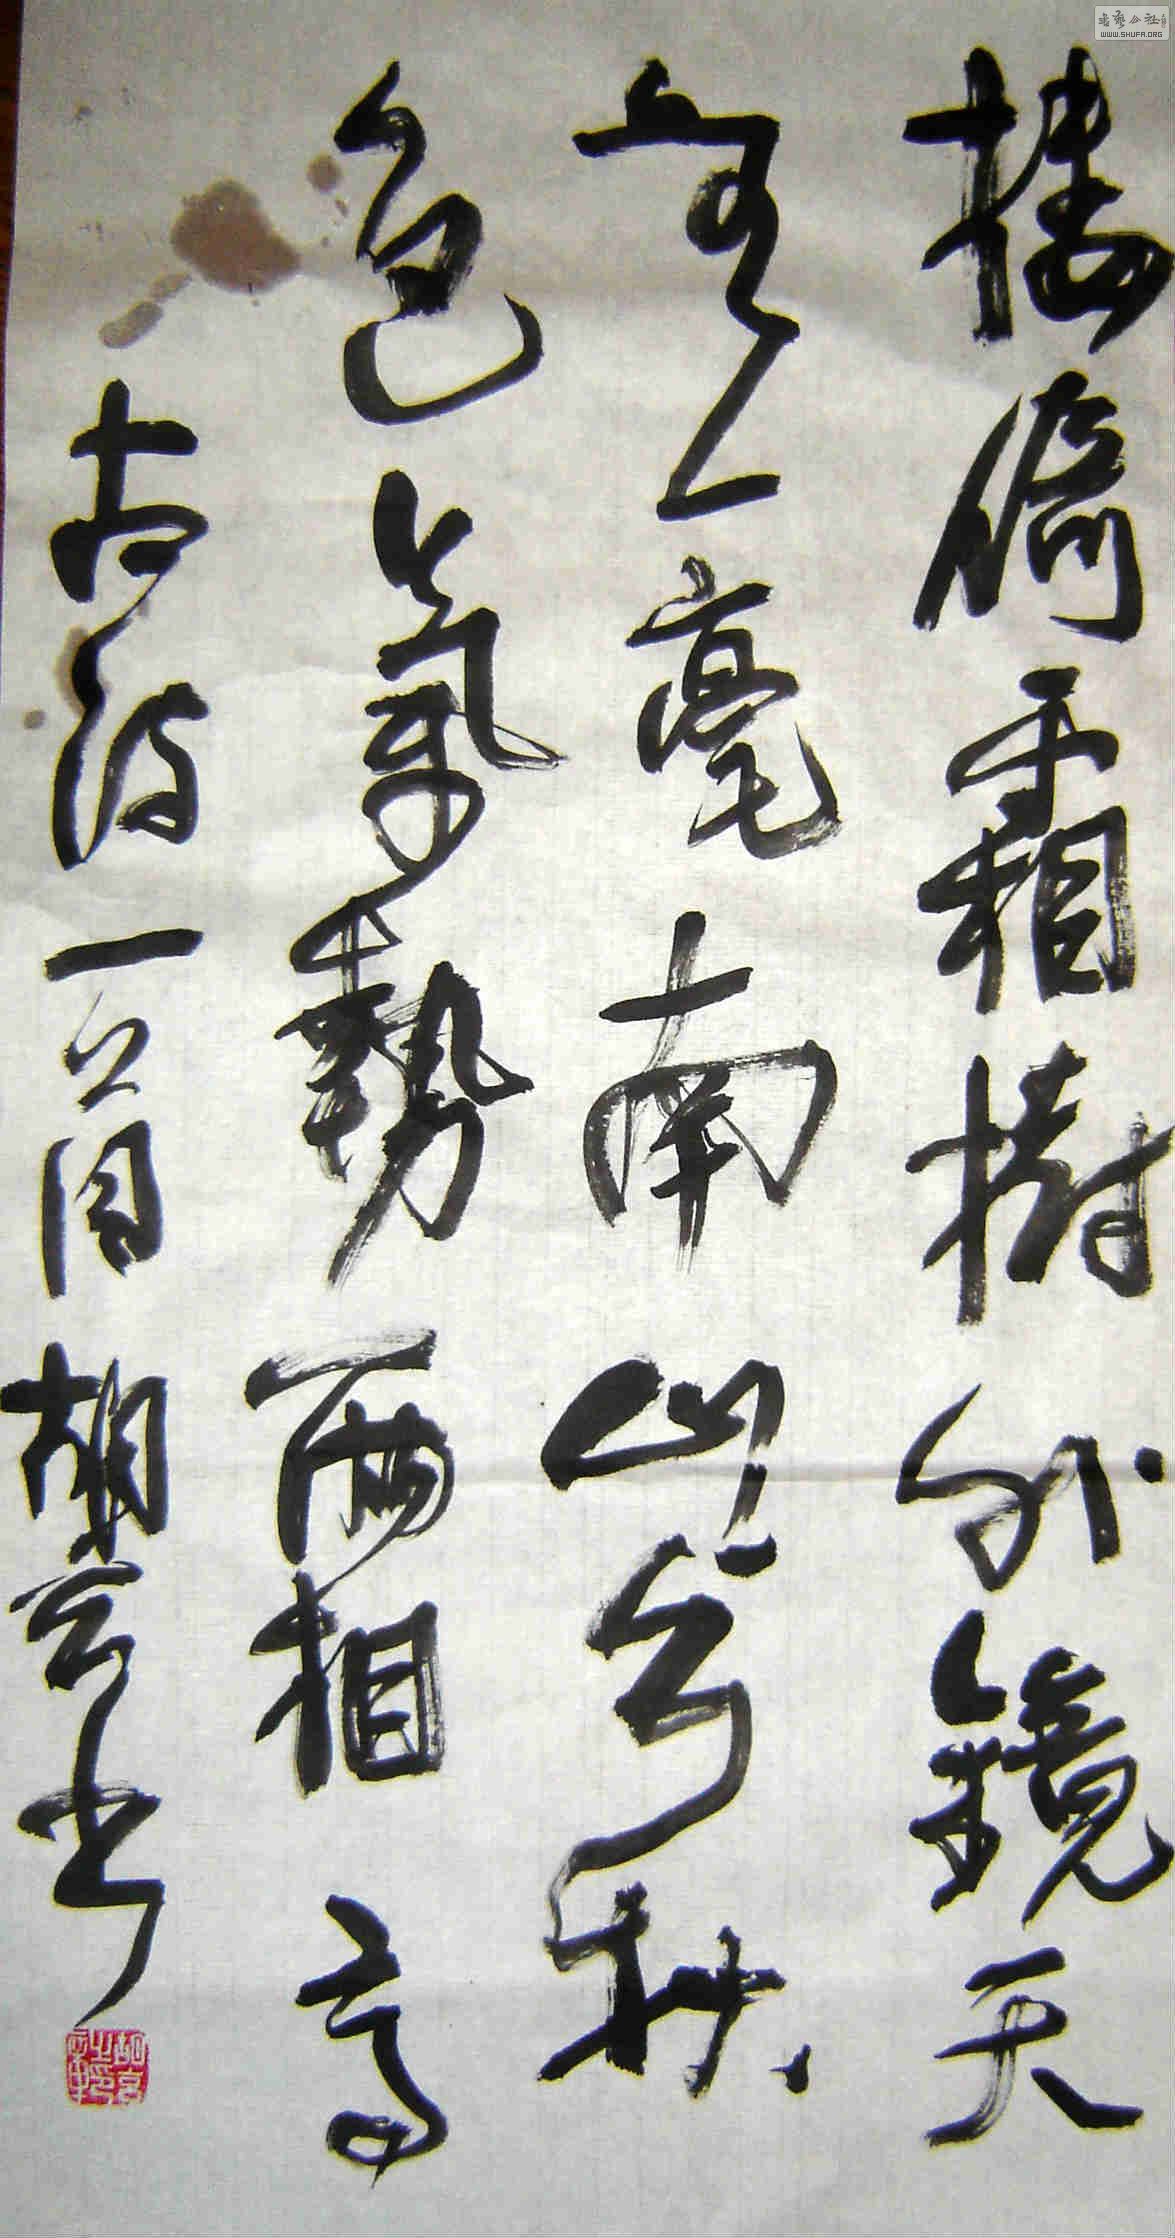 書藝公社
WWW.SHUFA.ORG
樓倚霜樹外鏡天
無一毫南山与秋
色氣勢兩相高
古诗一首胡书